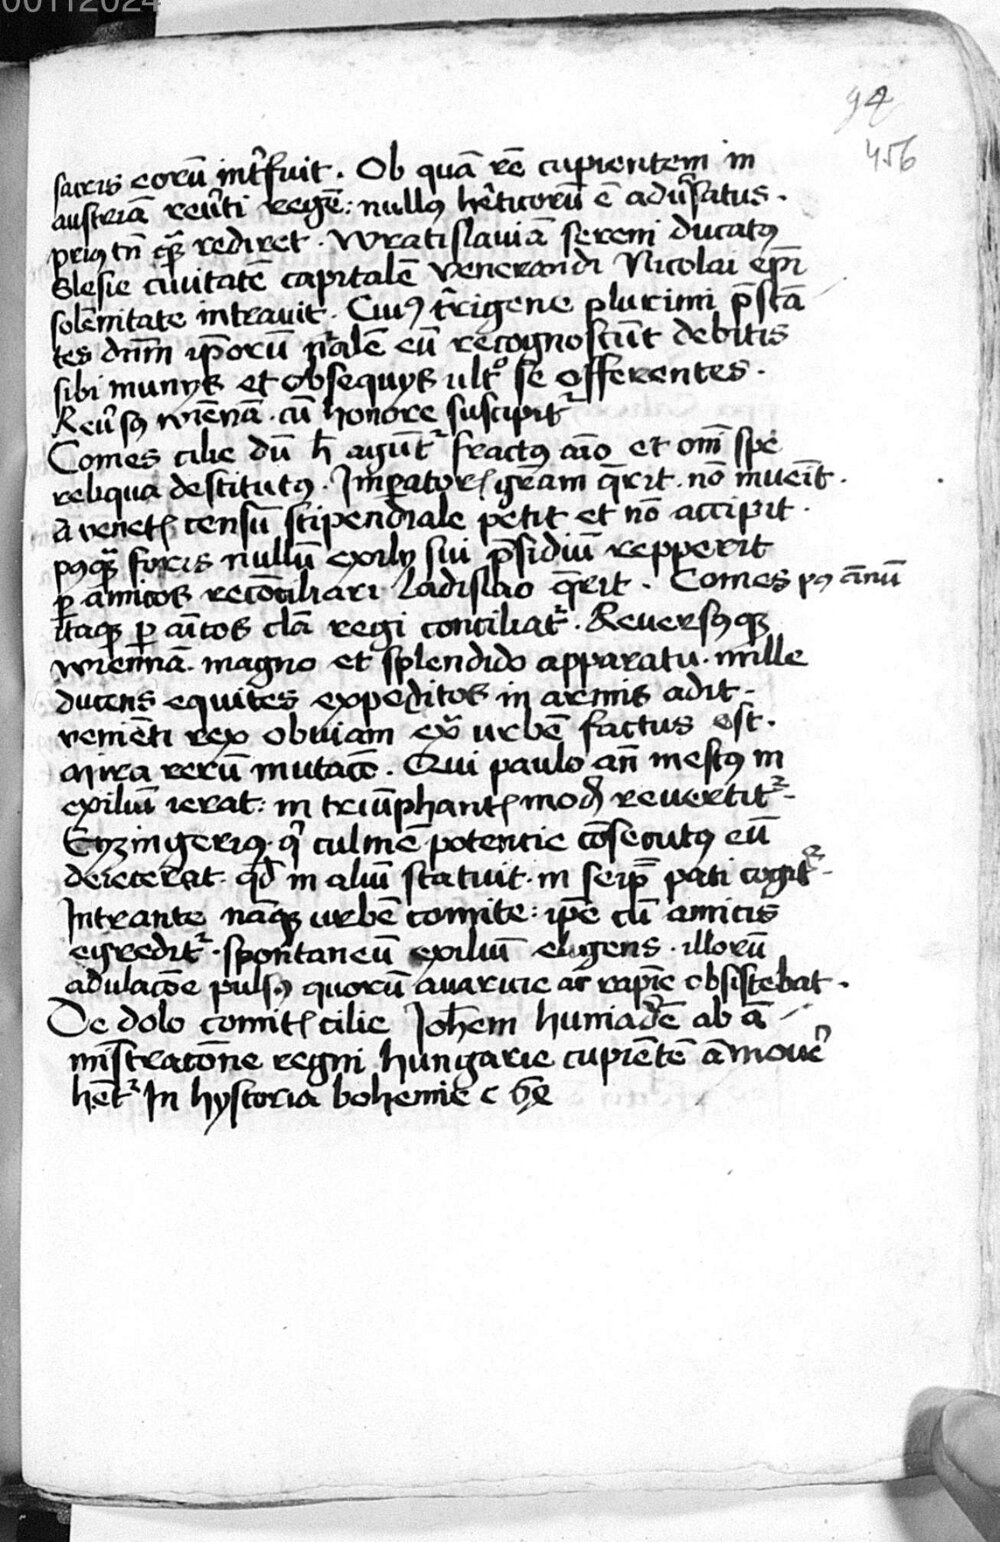 00112024
94
456
sacris eorū int̄fuit . Ob quā rē cupientem in
austriā reūti regē : nullꝯ hēticorū ē adūsatus .
priꝯ tn̄ ꝙ̄ rediret . Wratislauiā sereni ducatꝯ
Slesie ciuitatē capitalē Venerandi Nicolai ep̄i
solēnitate intrauit . Ciuiꝯ t̄rigene plurimi p̄stā
tes dn̄m ip̄orū n̄alē eū recognoscūt debitis
sibi munijs et obsequijs ult° se offerentes .
Reūsꝯ wiēnā . cū honore suscipit᷑
Comes cilie dū h̄ agūt᷑ fractꝯ aīo et om̄i spe
reliqua destitutꝯ . Imꝑatorꝭ gr̄am q̄rit . nō īnueīt .
A venetꝭ censū stipendiale petit et nō accipit .
pꝯꝙ̄ foris nullū exilij sui p̄sidiū repperit
ꝑ amicos recōciliari ladislao q̄rit . Comes pꝯ ānū
itaqꝫ ꝑ aīcos clā regi conciliat᷑ . Reuersꝯqꝫ
wiennā . magno et splendido apparatu . mille
ducens equites expeditos in armis adit .
venieti rex obuiam ex̄ urbē factus est .
mira rerū mutacō . Qui paulo an̄ mestꝯ in
exiliū ierat : in triūphantꝭ modū reuertit᷑ .
Eyzingeriꝯ . q̄ culmē potentie cōsecutꝯ eū
deiecerat . qd̄ in aliū statuit . in seip̄ pati cogit᷑ .
Intrante nāqꝫ urbē comite : ip̄e cū amicis
egredit᷑ . spontaneū exiliū eligens . illorū
adulacōe pulsꝯ quorū auaricie ac rapīe obsistebat .
De dolo comitꝭ cilie Joh̄em huniadē ab ā
mīstracōne regni hungarie cupiētē āmouē
hēt᷑ In hystoria bohemie c